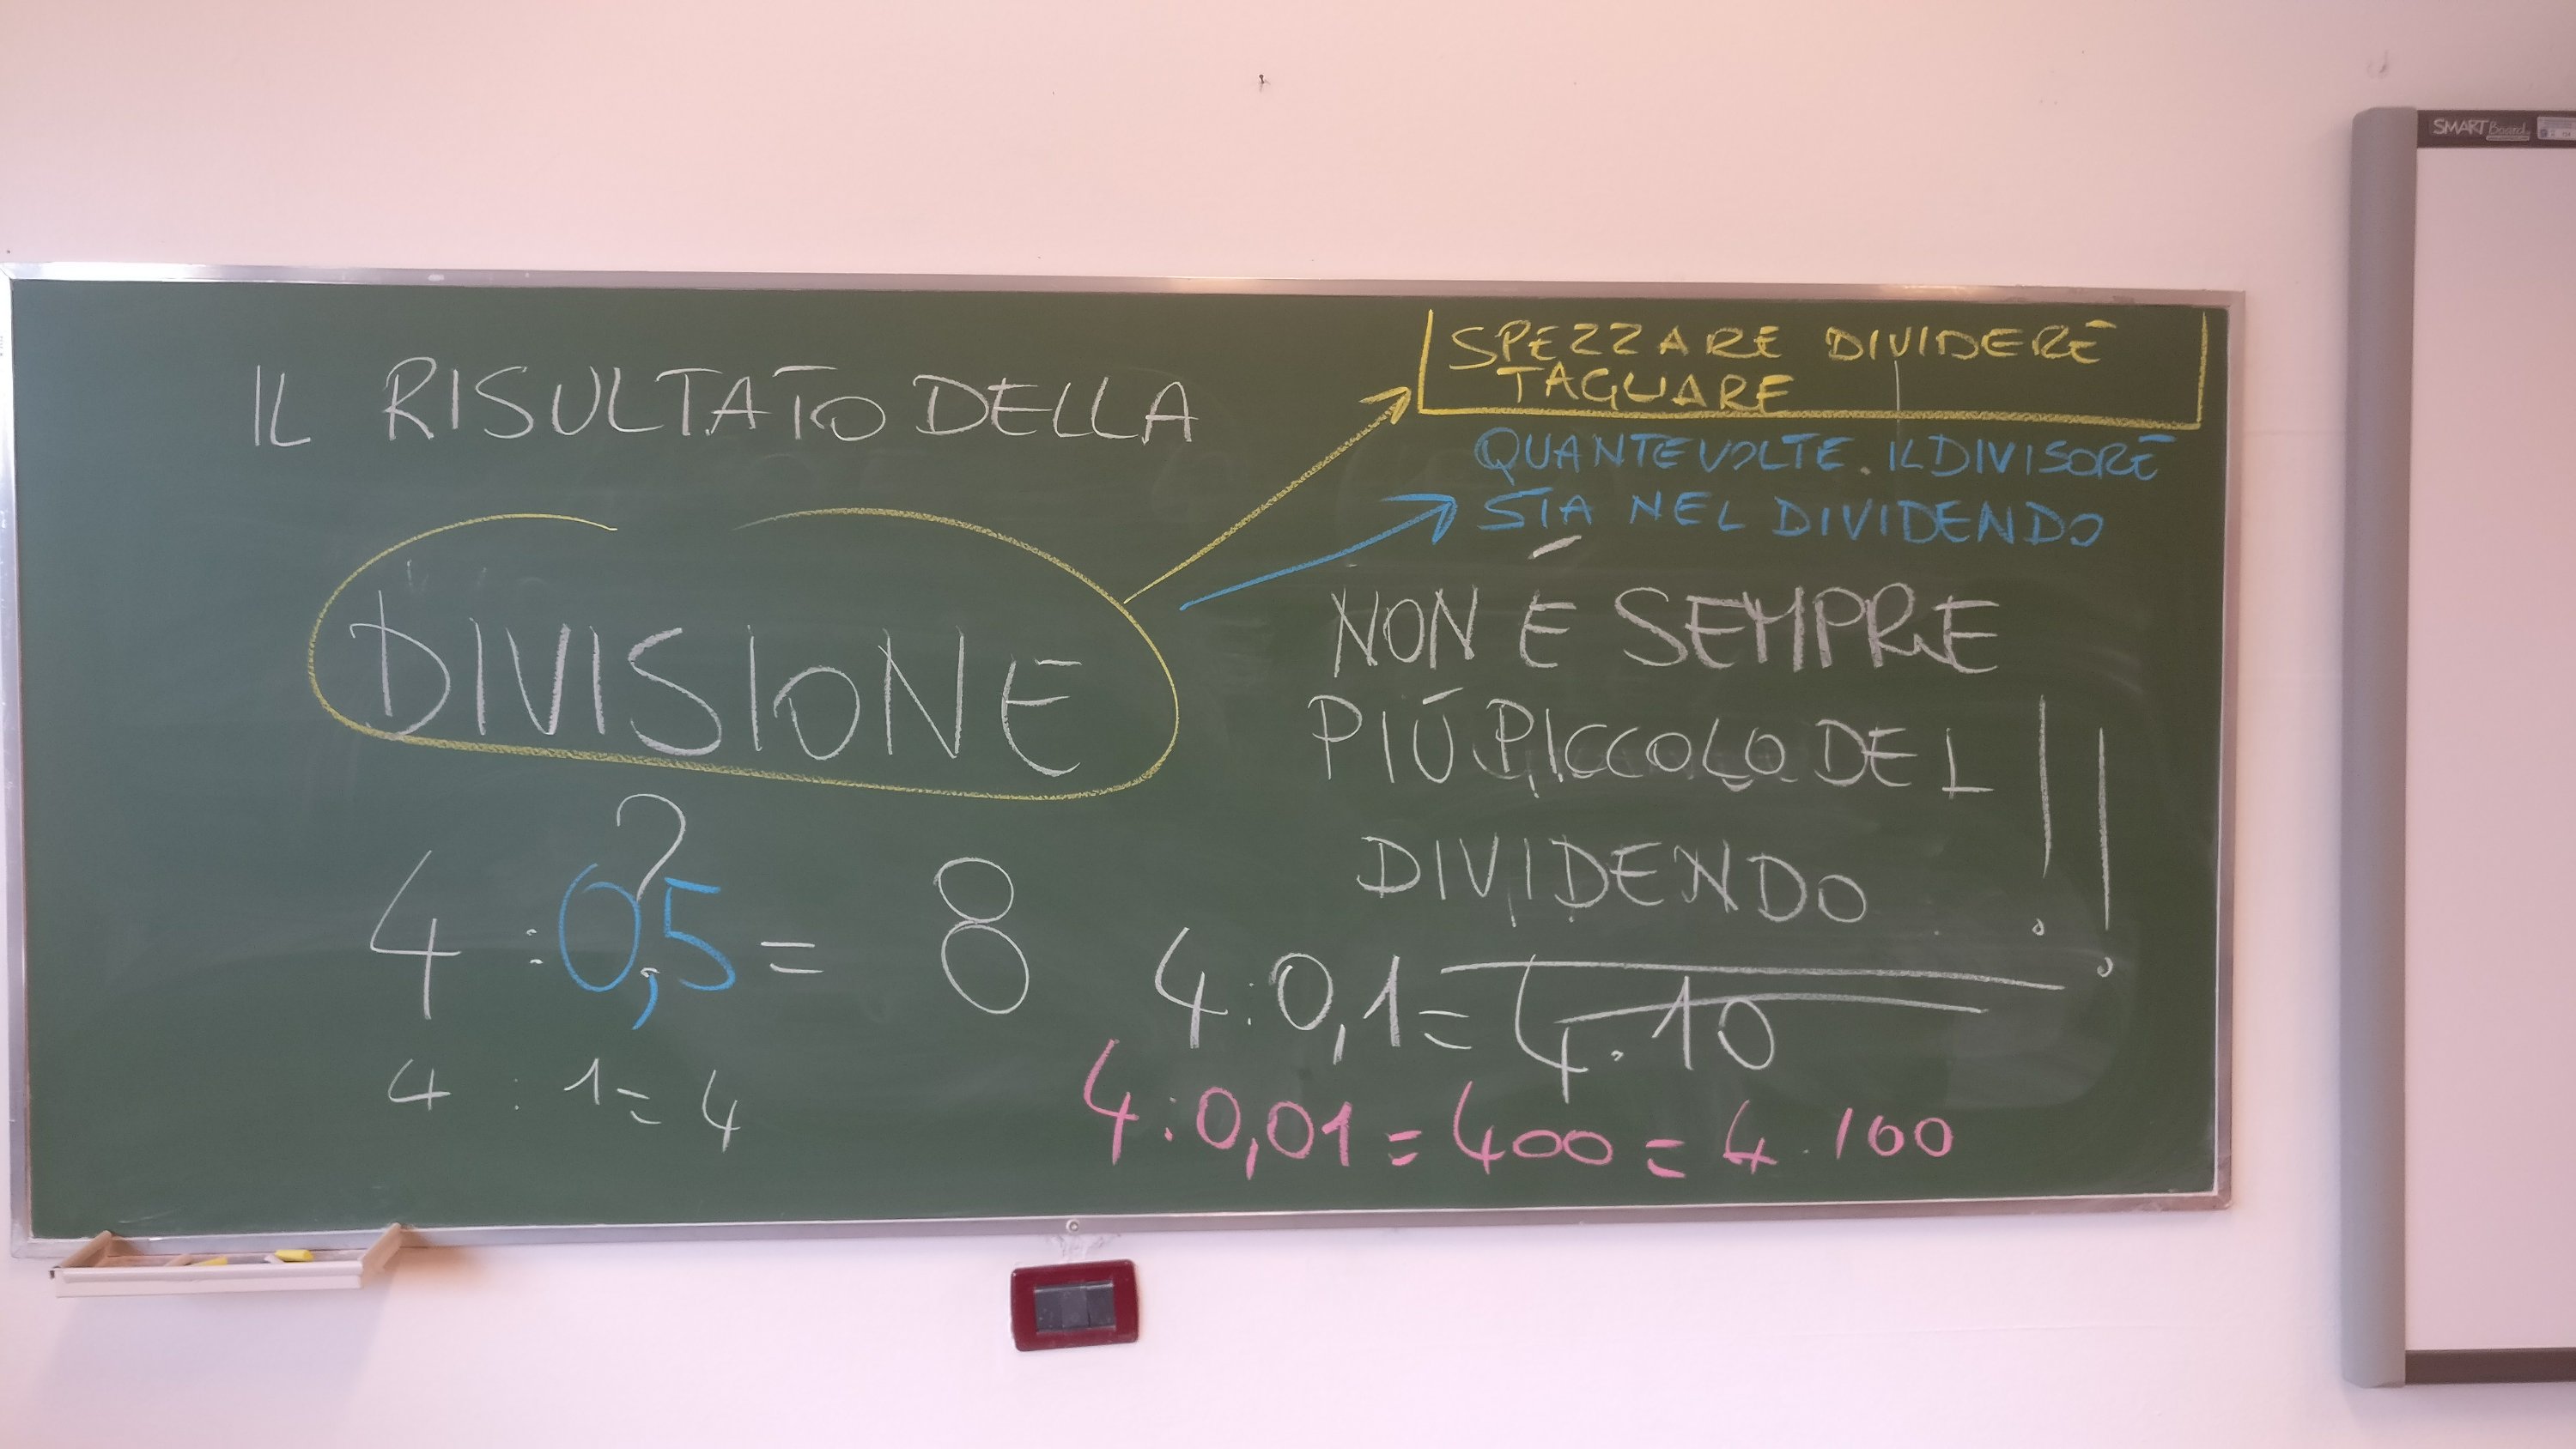 IL RISULTATO DELLA
DIVISIONE
SPEZZARE DIVIDERE
TAGLIARE
QUANTE VOLTE IL DIVISORE
STA NEL DIVIDENDO
NON É SEMPRE
PIÚ PICCOLO DEL
DIVIDENDO !!
?
4 : 0,5 = 8
4 : 1 = 4
4 : 0,1 = 4 . 10
4 : 0,01 = 400 = 4 . 100
SMART Board